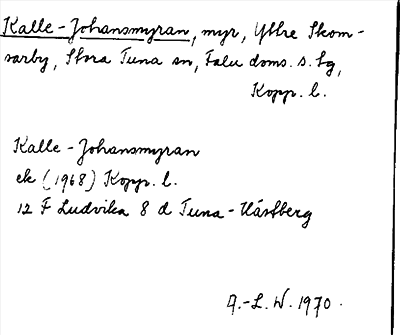 Kalle-Johansmyran, myr, Yttre Skom-
sarby, Stora Tuna sn, Falu doms. s. tg,
Kopp. l.
Kalle-Johansmyran
ek (1968) Kopp. l.
12 F Ludvika 8 d Tuna-Hästberg
A.-L. W. 1970.